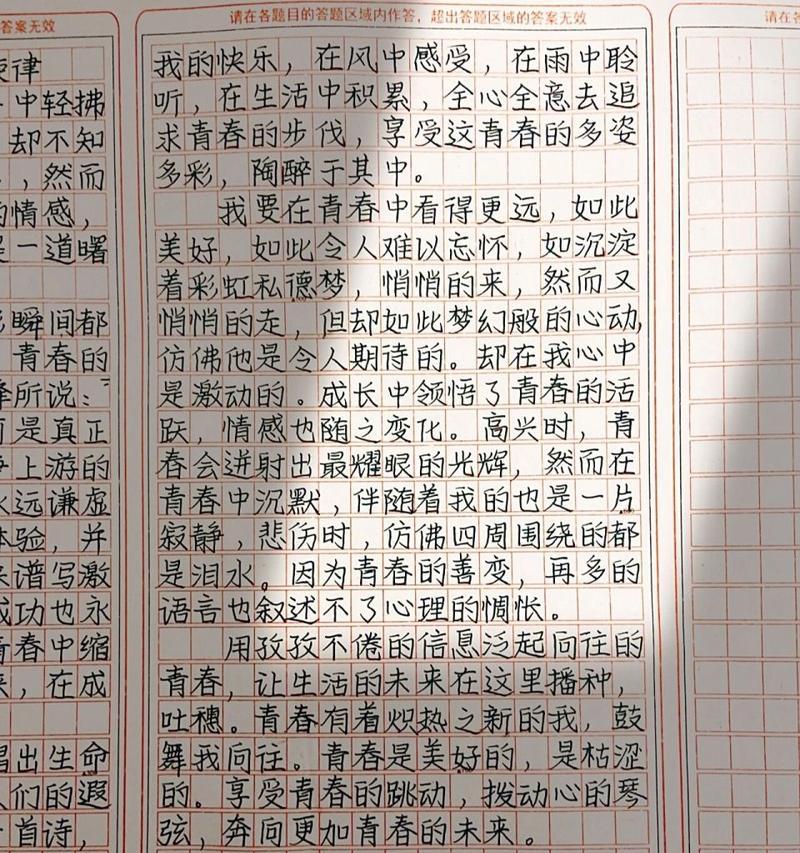 答案无效
旋律
中轻拂
却不知
，然而
的情感，
是一道曙
瞬间都
青春的
所说：“
而是真正
争上游的
永远谦虚
体验，并
来谱写激
成功也永
青春中缩
来，在成
唱出生命
人们的遐
首诗，
请在各题目的答题区域内作答，超出答题区域的答案无效
我的快乐，在风中感受，在雨中聆
听，在生活中积累，全心全意去追
求青春的步伐，享受这青春的多姿
多彩，陶醉于其中。
我要在青春中看得更远，如此
美好，如此令人难以忘怀，如沉淀
着彩虹私德梦，悄悄的来，然而又
悄悄的走，但却如此梦幻般的心动，
仿佛他是令人期待的。却在我心中
是激动的。成长中领悟了青春的活
跃，情感也随之变化。高兴时，青
春会迸射出最耀眼的光辉，然而在
青春中沉默，伴随着我的也是一片
寂静，悲伤时，仿佛四周围绕的都
是泪水。因为青春的善变，再多的
语言也叙述不了心理的惆怅。
用孜孜不倦的信息泛起向往的
青春，让生活的未来在这里播种，
吐穗。青春有着炽热之新的我，鼓
舞我向往。青春是美好的，是枯涩
的。享受青春的跳动，拨动心的琴
弦，奔向更加青春的未来。
请在各